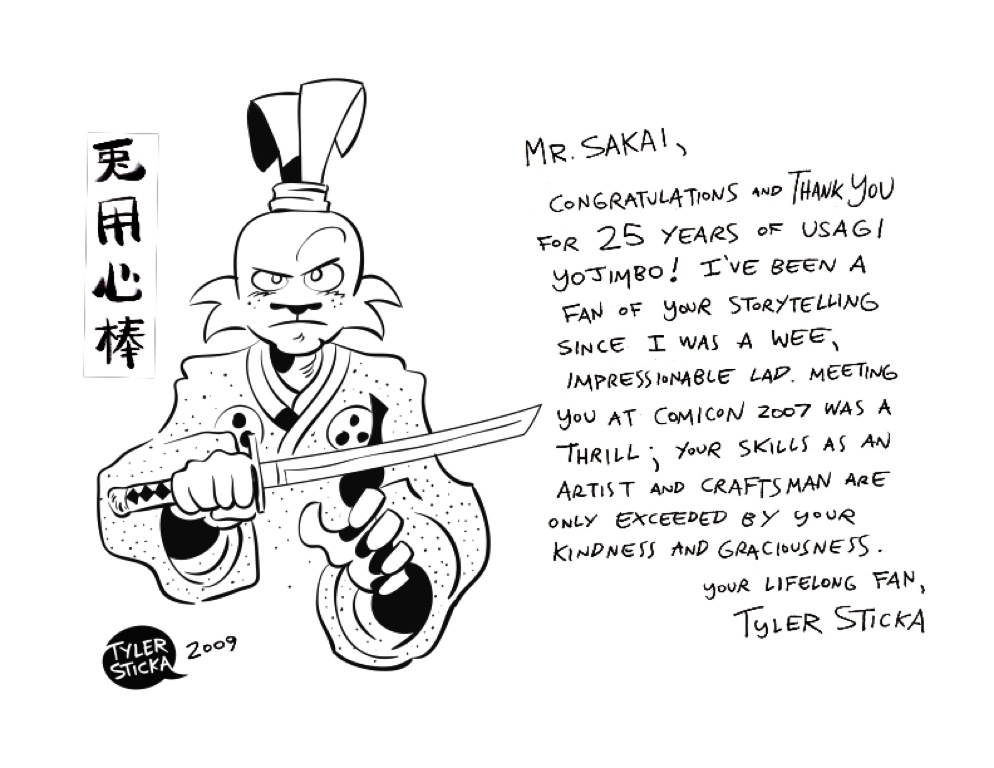 兎用心棒
MR. SAKAI,
CONGRATULATIONS AND THANK YOU
FOR 25 YEARS OF USAGI
YOJIMBO! I'VE BEEN A
FAN OF YOUR STORYTELLING
SINCE I WAS A WEE,
IMPRESSIONABLE LAD. MEETING
YOU AT COMICON 2007 WAS A
THRILL; YOUR SKILLS AS AN
ARTIST AND CRAFTSMAN ARE
ONLY EXCEEDED BY YOUR
KINDNESS AND GRACIOUSNESS.
YOUR LIFELONG FAN,
TYLER STICKA
TYLER
STICKA
2009